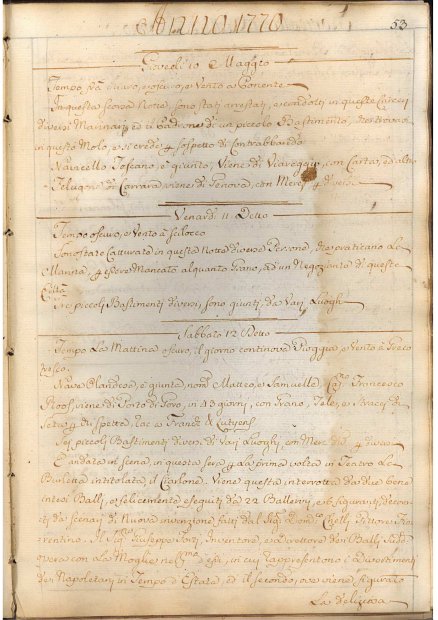 Anno 1770
53
Giovedì 10 Maggio
Tempo già chiaro, e oscuro, e Vento a Ponente
In questa scorsa Notte, sono stati arrestati, e condotti in queste Carceri
diversi Marinari, ed il Padrone di un piccolo Bastimento, che trovavasi
in questo Molo, e si crede p sospetto di Contrabbando
Navicello Toscano, è giunto, Viene di Viareggio, con Cartar, ed altro
Feluga di Carrara viene di Genova, con Merci p diversi
Venerdì 11 Detto
Tempo oscuro, e Vento à Scilocco
Sono state Catturate in questa Notte diverse Persone, che praticano la
Marina, p essere Mancato alquanto Grano, ad un Negoziante di questa
Città
Tre piccoli Bastimenti diversi, sono giunti, da Varj Luoghi
Sabbato 12 Detto
Tempo La Mattina oscuro, il giorno continova Pioggia, e Vento à Greco
fresco
Nave Olandese, è giunta, nom. Matteo, e Samuelle, Cap. Francesco
Roos, viene di Porto di Goro, in 43 giorni, con Grano, Tele, e Stracci di
Seta, p Franc. & Lutyens
Sei piccoli Bastimenti diversi, di Varj Luoghi, con Merc. p diversi
È andata in scena, in questa sera, p la prima volta in Teatro La
Burletta intitolata, il Carlone. Viene questa interrotta da due bene
intesi Balli, e felicemente eseguiti da 22 Ballerini, e 6 figuranti, decora-
ti da scenarj di Nuova invenzione, fatti dal Sig. Dom. Chelli, Pittore Fio-
rentino. Il Sig. Giuseppe Forti, Inventore, e Direttore dei Balli, Sud.
opera con La Moglie ne med. essi, in cui rappresentono i Divertimenti
dei Napoletani in Tempo d'Estate, ed il secondo, ove viene figurato
La deliziosa